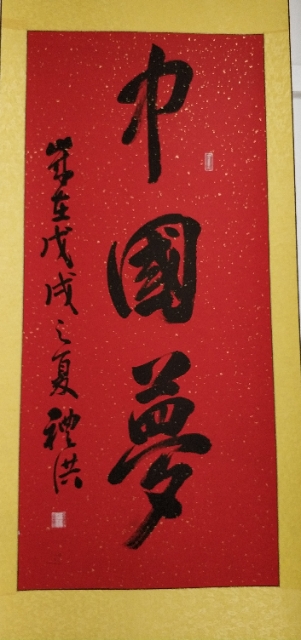 中國夢
歲在戊戌之夏 禮洪